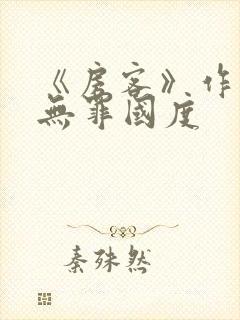 《房客》作
無罪國度
秦殊然